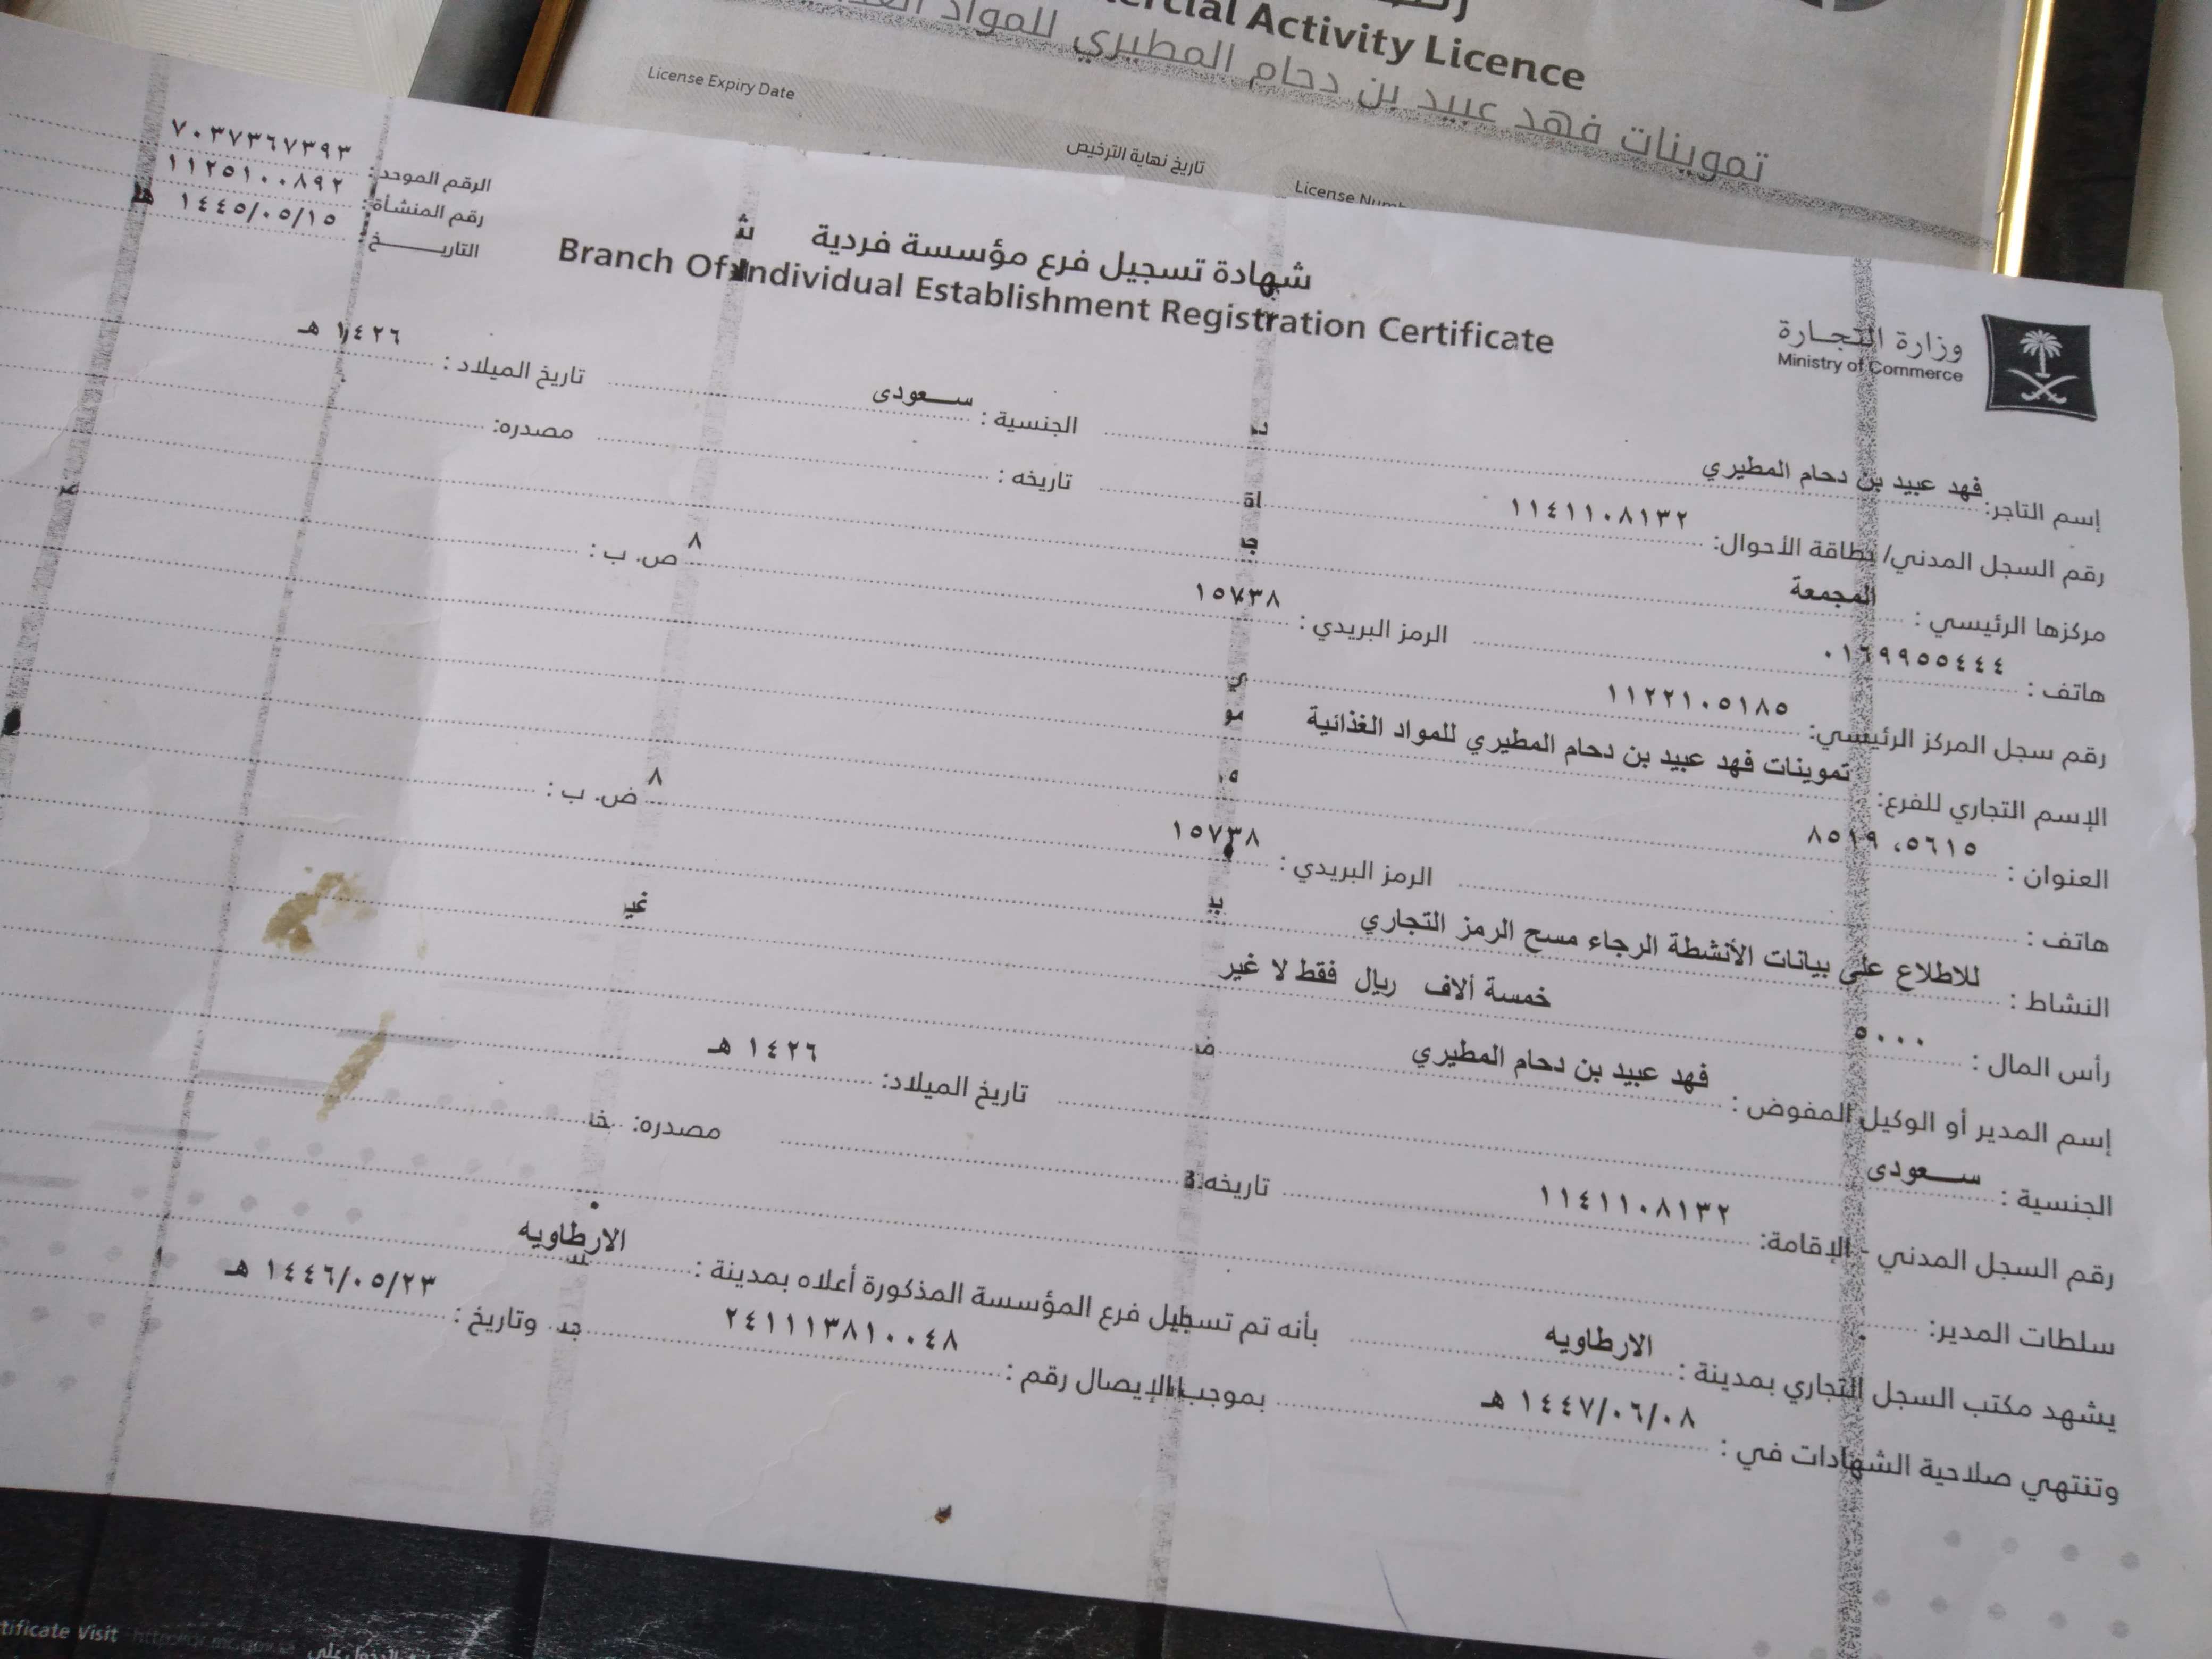 ercial Activity Licence
تموينات فهد عبيد بن دحام المطيري للمواد
License Expiry Date
تاريخ نهاية الترخيص
License Numb
الرقم الموحد : ٧٠٣٧٣٦٧٣٩٣
رقم المنشأة : ١١٢٥١٠٠٨٩٢
التاريـــــخ : ١٤٤٥/٠٥/١٥ هـ
شهادة تسجيل فرع مؤسسة فردية
Branch Of Individual Establishment Registration Certificate
وزارة التجـارة
Ministry of Commerce
إسم التاجر: فهد عبيد بن دحام المطيري الجنسية : ســعودى تاريخ الميلاد : ١٤٢٦ هـ
رقم السجل المدني/ بطاقة الأحوال: ١١٤١١٠٨١٣٢ تاريخه : مصدره:
مركزها الرئيسي : المجمعة
هاتف : ٠١٦٩٩٥٥٤٤٤ الرمز البريدي : ١٥٧٣٨ ص. ب : ٨
رقم سجل المركز الرئيسي: ١١٢٢١٠٥١٨٥
الإسم التجاري للفرع: تموينات فهد عبيد بن دحام المطيري للمواد الغذائية
العنوان : ٥٦١٥، ٨٥١٩
هاتف : الرمز البريدي : ١٥٧٣٨ ص. ب : ٨
النشاط : للاطلاع على بيانات الأنشطة الرجاء مسح الرمز التجاري
رأس المال : ٥٠٠٠ خمسة ألاف ريال فقط لا غير
إسم المدير أو الوكيل المفوض : فهد عبيد بن دحام المطيري
الجنسية : ســعودى تاريخ الميلاد: ١٤٢٦ هـ
رقم السجل المدني - الإقامة: ١١٤١١٠٨١٣٢ تاريخه: مصدره:
سلطات المدير:
يشهد مكتب السجل التجاري بمدينة : الارطاويه بأنه تم تسجيل فرع المؤسسة المذكورة أعلاه بمدينة : الارطاويه
وتنتهي صلاحية الشهادات في : ١٤٤٧/٠٦/٠٨ هـ بموجب الإيصال رقم : ٢٤١١١٣٨١٠٠٤٨ وتاريخ : ١٤٤٦/٠٥/٢٣ هـ
tificate Visit